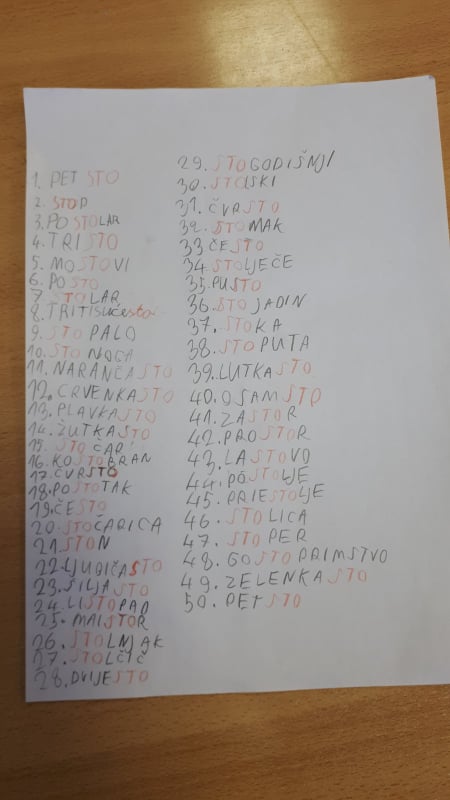 1. PET STO
2. STOP
3. POSTOLAR
4. TRISTO
5. MOSTOVI
6. POSTO
7. STOLAR
8. TRITISUĆESTO
9. STOPALO
10. STO NOGA
11. NARANČASTO
12. CRVENKASTO
13. PLAVKASTO
14. ŽUTKASTO
15. STOČAR
16. KOSTOBRAN
17. ČVRSTO
18. POSTOTAK
19. ČESTO
20. STOČARICA
21. STON
22. LJUBIČASTO
23. ŠILJASTO
24. LISTOPAD
25. MAISTOR
26. STOLNJAK
27. STOLČIĆ
28. DVIJESTO
29. STOGODIŠNJI
30. STOLSKI
31. ČVRSTO
32. STOMAK
33. ČESTO
34. STOLJEČE
35. PUSTO
36. STO JADIN
37. STOKA
38. STOPUTA
39. LUTKASTO
40. OSAMSTO
41. ZASTOR
42. PROSTOR
43. LASTOVO
44. POSTOLJE
45. PRIESTOLJE
46. STOLICA
47. STOPER
48. GOSTOPRIMSTVO
49. ZELENKASTO
50. PETSTO